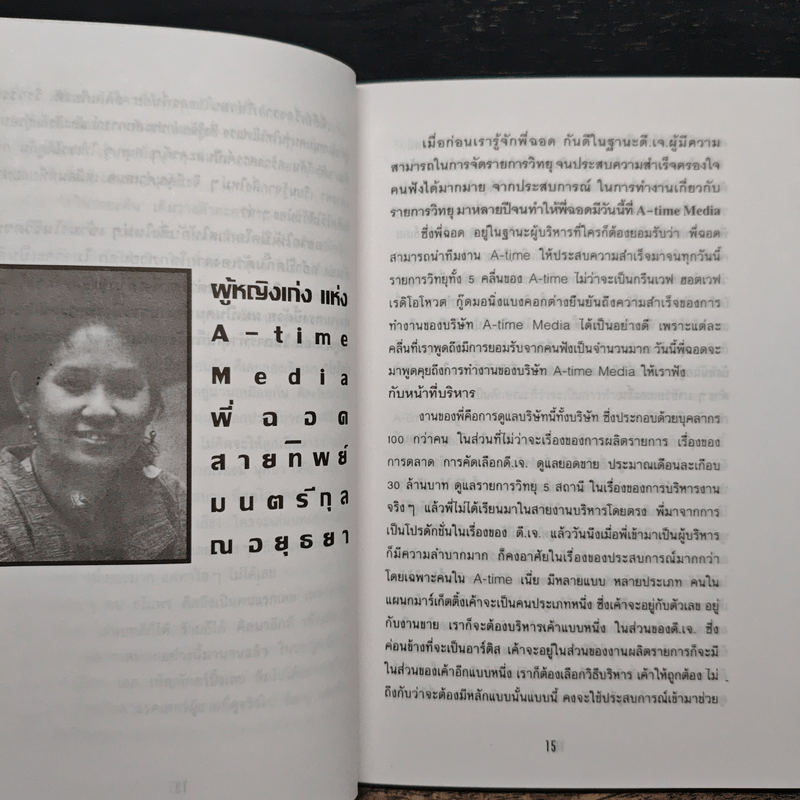 ผู้หญิงเก่ง แห่ง
A - time
Media
พี่ฉอด
สายทิพย์
มนตรีกุล
ณ อยุธยา
เมื่อก่อนเรารู้จักพี่ฉอด กันดีในฐานะดี.เจ.ผู้มีความ
สามารถในการจัดรายการวิทยุ จนประสบความสำเร็จครองใจ
คนฟังได้มากมาย จากประสบการณ์ ในการทำงานเกี่ยวกับ
รายการวิทยุ มาหลายปีจนทำให้พี่ฉอดมีวันนี้ที่ A-time Media
ซึ่งพี่ฉอด อยู่ในฐานะผู้บริหารที่ใครก็ต้องยอมรับว่า พี่ฉอด
สามารถนำทีมงาน A-time ให้ประสบความสำเร็จมาจนทุกวันนี้
รายการวิทยุทั้ง 5 คลื่นของ A-time ไม่ว่าจะเป็นกรีนเวฟ ฮอตเวฟ
เรดิโอโหวต กู๊ดมอนิ่งแบงคอกต่างยืนยันถึงความสำเร็จของการ
ทำงานของบริษัท A-time Media ได้เป็นอย่างดี เพราะแต่ละ
คลื่นที่เราพูดถึงมีการยอมรับจากคนฟังเป็นจำนวนมาก วันนี้พี่ฉอดจะ
มาพูดคุยถึงการทำงานของบริษัท A-time Media ให้เราฟัง
กับหน้าที่บริหาร
งานของพี่คือการดูแลบริษัทนี้ทั้งบริษัท ซึ่งประกอบด้วยบุคลากร
100 กว่าคน ในส่วนที่ไม่ว่าจะเรื่องของการผลิตรายการ เรื่องของ
การตลาด การคัดเลือกดี.เจ. ดูแลยอดขาย ประมาณเดือนละเกือบ
30 ล้านบาท ดูแลรายการวิทยุ 5 สถานี ในเรื่องของการบริหารงาน
จริงๆ แล้วพี่ไม่ได้เรียนมาในสายงานบริหารโดยตรง พี่มาจากการ
เป็นโปรดักชั่นในเรื่องของ ดี.เจ. แล้ววันนึงเมื่อพี่เข้ามาเป็นผู้บริหาร
ก็มีความลำบากมาก ก็คงอาศัยในเรื่องของประสบการณ์มากกว่า
โดยเฉพาะคนใน A-time เนี่ย มีหลายแบบ หลายประเภท คนใน
แผนกมาร์เก็ตติ้งเค้าจะเป็นคนประเภทหนึ่ง ซึ่งเค้าจะอยู่กับตัวเลข อยู่
กับงานขาย เราก็จะต้องบริหารเค้าแบบหนึ่ง ในส่วนของดี.เจ. ซึ่ง
ค่อนข้างที่จะเป็นอาร์ติส เค้าจะอยู่ในส่วนของงานผลิตรายการก็จะมี
ในส่วนของเค้าอีกแบบหนึ่ง เราก็ต้องเลือกวิธีบริหาร เค้าให้ถูกต้อง ไม่
ถึงกับว่าจะต้องมีหลักแบบนั้นแบบนี้ คงจะใช้ประสบการณ์เข้ามาช่วย
15